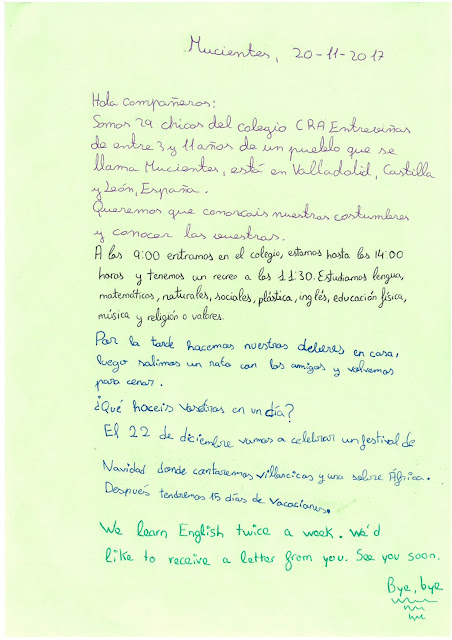 Mucientes, 20-11-2017
Hola compañeros:
Somos 29 chicos del colegio CRA Entreviñas
de entre 3 y 11 años de un pueblo que se
llama Mucientes, está en Valladolid, Castilla
y León, España.
Queremos que conozcais nuestras costumbres
y conocer las vuestras.
A las 9:00 entramos en el colegio, estamos hasta las 14:00
horas y tenemos un recreo a las 11:30. Estudiamos lengua,
matemáticas, naturales, sociales, plástica, inglés, educación física,
música y religión o valores.
Por la tarde hacemos nuestros deberes en casa,
luego salimos un rato con los amigos y volvemos
para cenar.
¿Qué haceis vosotros en un día?
El 22 de diciembre vamos a celebrar un festival de
Navidad donde cantaremos villancicos y uno sobre África.
Después tendremos 15 días de vacaciones.
We learn English twice a week. We'd
like to receive a letter from you. See you soon.
Bye, bye